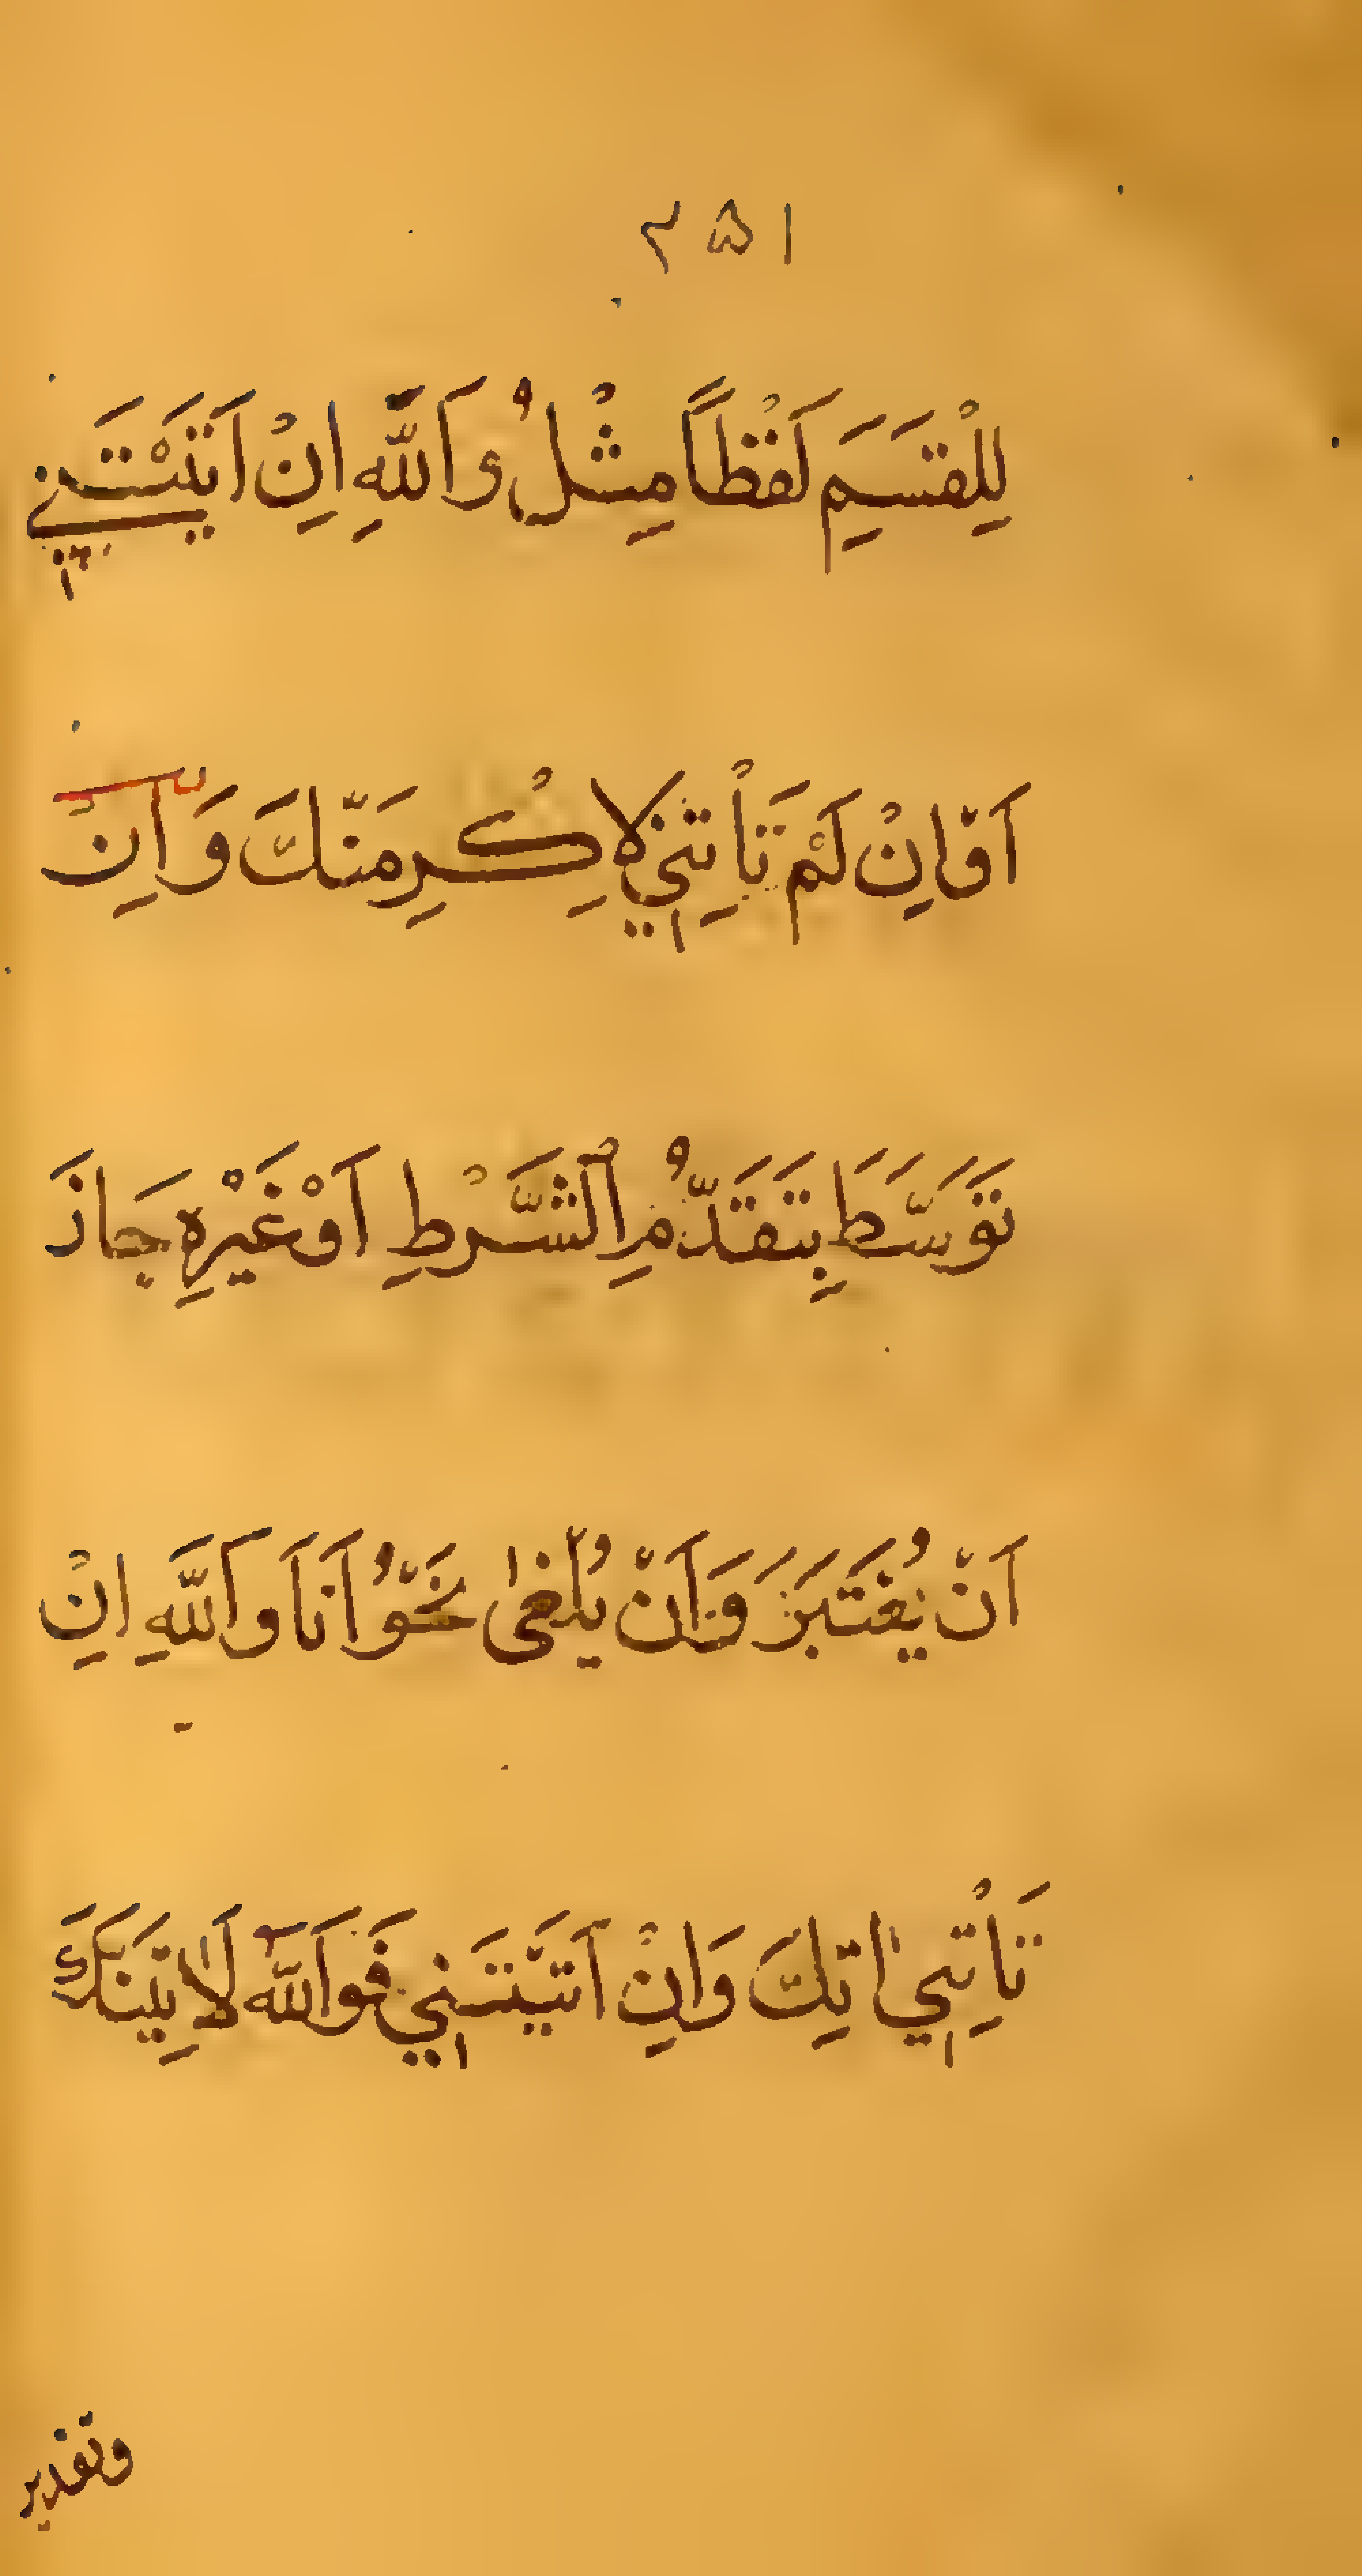 ٣٥١
لِلْقَسَمِ لَفْظاً مِثْلُ وَاَللّٰهِ اِنْ اَتَيْتَنِي
اَوْ اِنْ لَمْ تَأْتِنِي لَاُكْرِمَنَّكَ وَاِنْ
تَوَسَّطَ بِتَقَدُّمِ الْشَّرْطِ اَوْ غَيْرِهِ جَازَ
اَنْ يُعْتَبَرَ وَاَنْ يُلْغٰى نَحْوُ اَنَا وَاَللّٰهِ اِنْ
تَأْتِنِي اٰتِكَ وَاِنْ اَتَيْتَنِي فَوَاَللّٰهِ لَاٰتِيَنَّكَ
وتقدير